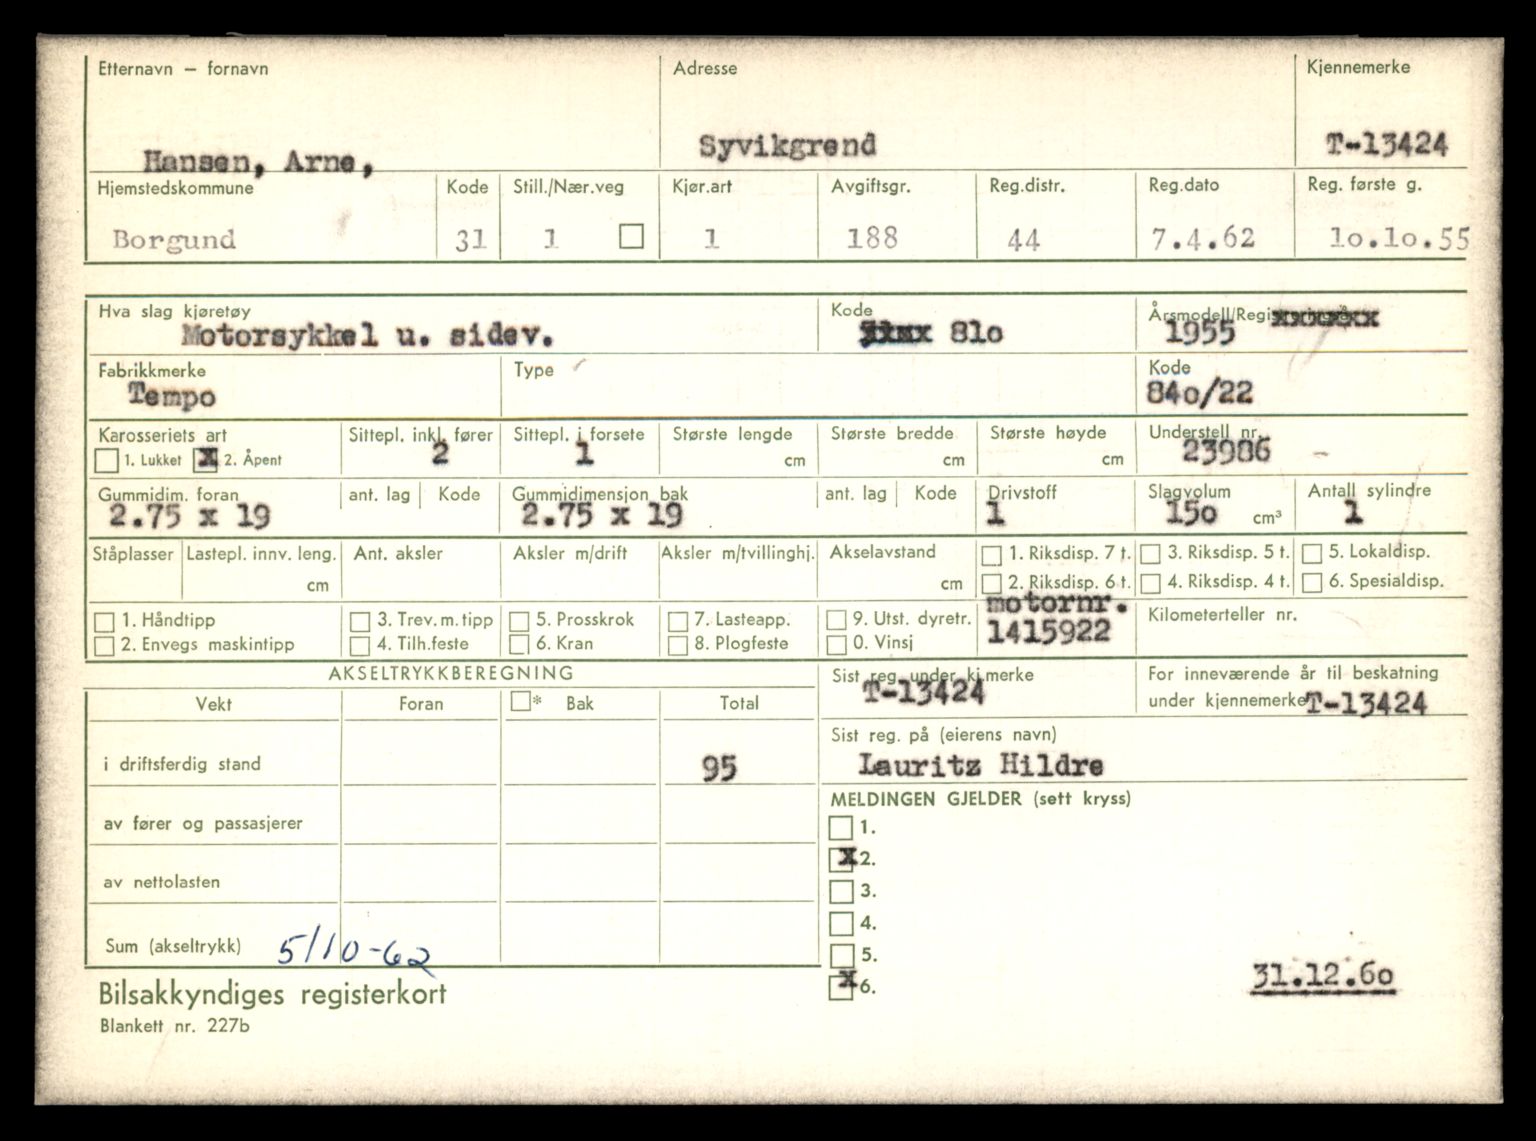 Etternavn – fornavn Adresse Kjennemerke
Hansen, Arne, Syvikgrend T-13424
Hjemstedskommune Kode Still./Nær.veg Kjør.art Avgiftsgr. Reg.distr. Reg.dato Reg. første g.
Borgund 31 1 1 188 44 7.4.62 1o.1o.55
Hva slag kjøretøy Kode Årsmodell/Registreringsår
Motorsykkel u. sidev. 81o 1955
Fabrikkmerke Type Kode
Tempo 84o/22
Karosseriets art Sittepl. inkl. fører Sittepl. i forsete Største lengde Største bredde Største høyde Understell nr.
1. Lukket x 2. Åpent 2 1 cm cm cm 23986
Gummidim. foran ant. lag Kode Gummidimensjon bak ant. lag Kode Drivstoff Slagvolum Antall sylindre
2.75 x 19 2.75 x 19 1 15o cm³ 1
Ståplasser Lastepl. innv. leng. Ant. aksler Aksler m/drift Aksler m/tvillinghj. Akselavstand 1. Riksdisp. 7 t. 3. Riksdisp. 5 t. 5. Lokaldisp.
cm cm 2. Riksdisp. 6 t. 4. Riksdisp. 4 t. 6. Spesialdisp.
1. Håndtipp 3. Trev. m. tipp 5. Prosskrok 7. Lasteapp. 9. Utst. dyretr. motornr. Kilometerteller nr.
2. Envegs maskintipp 4. Tilh.feste 6. Kran 8. Plogfeste 0. Vinsj 1415922
AKSELTRYKKBEREGNING Sist reg. under kj.merke For inneværende år til beskatning
Vekt Foran * Bak Total T-13424 under kjennemerke T-13424
Sist reg. på (eierens navn)
i driftsferdig stand 95 Lauritz Hildre
MELDINGEN GJELDER (sett kryss)
av fører og passasjerer 1.
x 2.
av nettolasten 3.
4.
Sum (akseltrykk) 5/10-62 5.
x 6. 31.12.6o
Bilsakkyndiges registerkort
Blankett nr. 227b